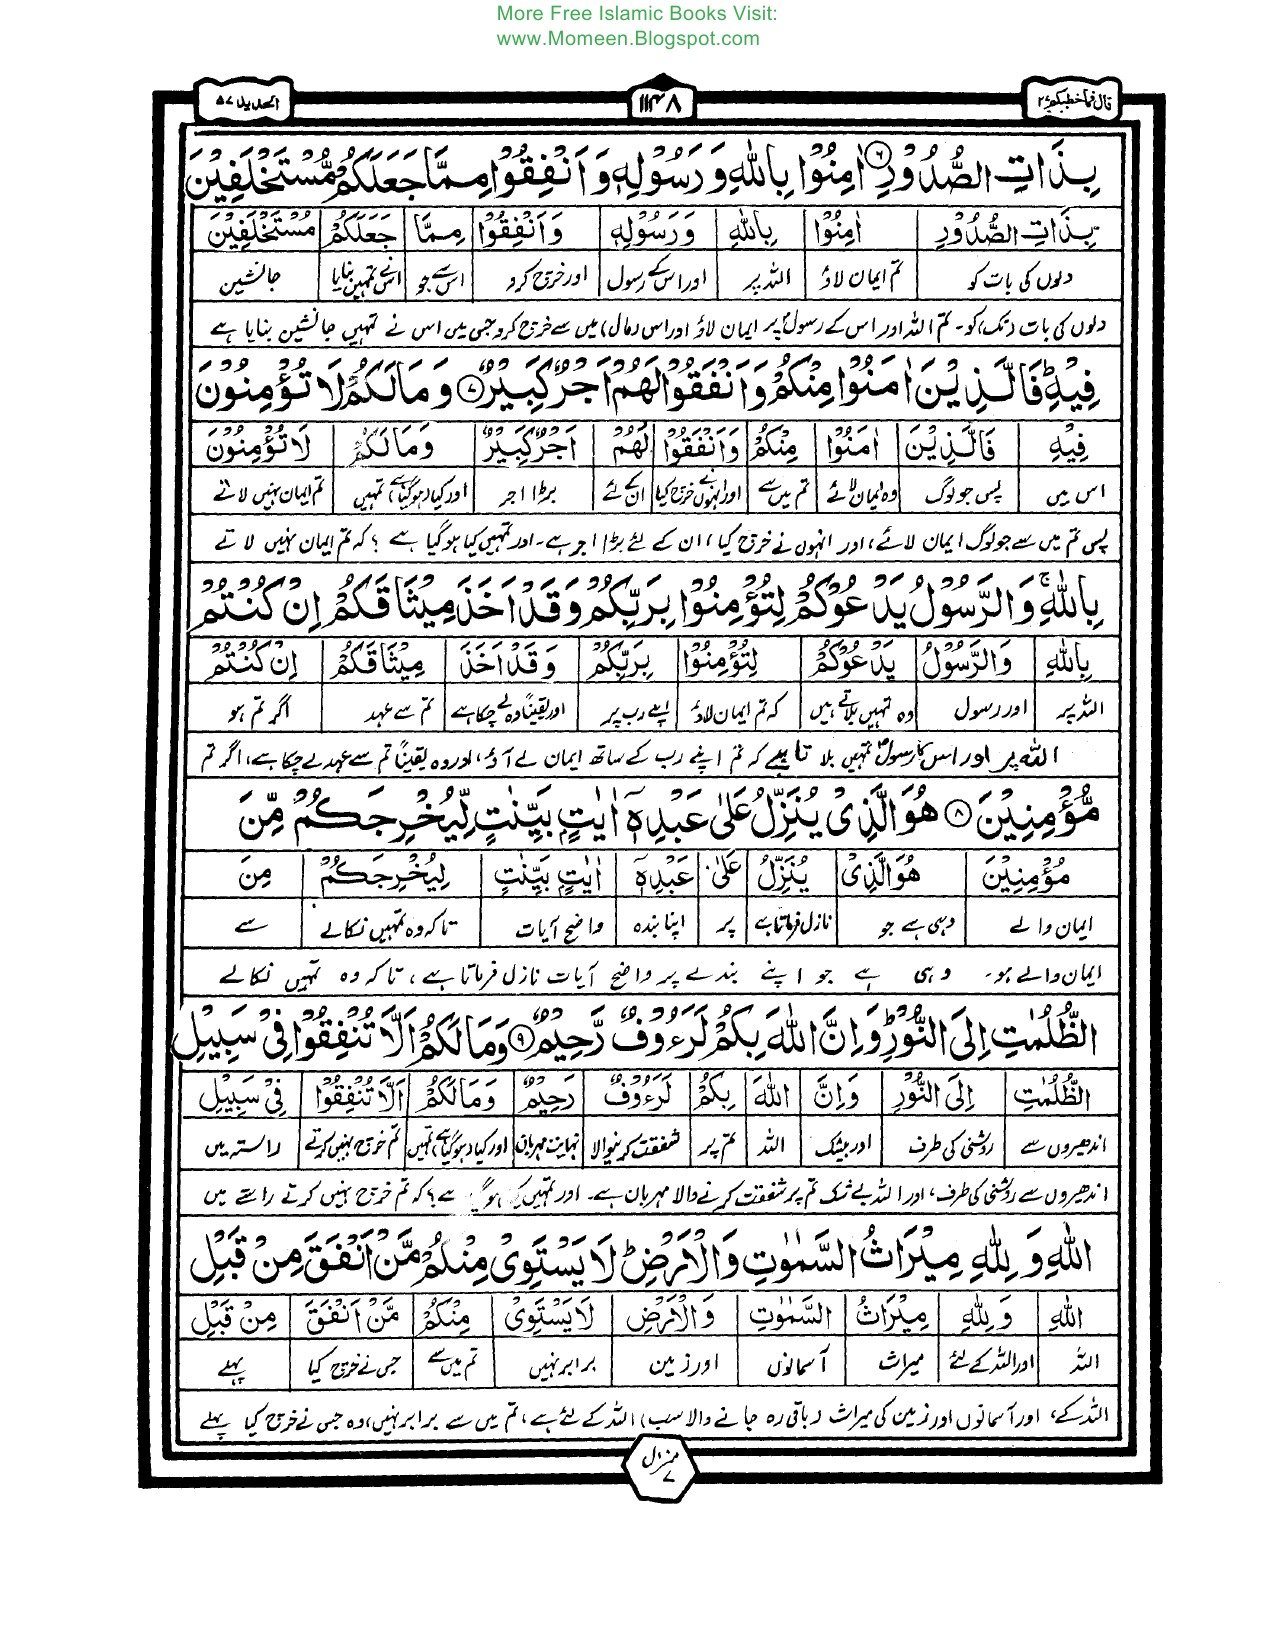 More Free Islamic Books Visit:
www.Momeen.Blogspot.com
قال فما خطبکم ۲۷
۱۱۴۸
الحدید ۵۷
بِذَاتِ الصُّدُوْرِ ۶ اٰمِنُوْا بِاللّٰهِ وَرَسُوْلِهٖ وَاَنْفِقُوْا مِمَّا جَعَلَكُمْ مُّسْتَخْلَفِيْنَ
بِذَاتِ الصُّدُوْرِ اٰمِنُوْا بِاللّٰهِ وَرَسُوْلِهٖ وَاَنْفِقُوْا مِمَّا جَعَلَكُمْ مُسْتَخْلَفِيْنَ
دلوں کی بات کو تم ایمان لاؤ اللہ پر اور اس کے رسول اور خرچ کرو اس سے جو اس نے تمہیں بنایا جانشین
دلوں کی بات (تک) کو۔ تم اللہ اور اس کے رسولؐ پر ایمان لاؤ اور اس (مال) میں سے خرچ کرو جس میں اس نے تمہیں جانشین بنایا ہے
فِيْهِ ؕ فَالَّذِيْنَ اٰمَنُوْا مِنْكُمْ وَاَنْفَقُوْا لَهُمْ اَجْرٌ كَبِيْرٌ ۷ وَمَا لَكُمْ لَا تُؤْمِنُوْنَ
فِيْهِ فَالَّذِيْنَ اٰمَنُوْا مِنْكُمْ وَاَنْفَقُوْا لَهُمْ اَجْرٌ كَبِيْرٌ وَمَا لَكُمْ لَا تُؤْمِنُوْنَ
اس میں پس جو لوگ وہ ایمان لائے تم میں سے اور انہوں نے خرچ کیا ان کے لئے بڑا اجر اور کیا (ہوگیا ہے) تمہیں تم ایمان نہیں لاتے
پس تم میں سے جو لوگ ایمان لائے، اور انہوں نے خرچ کیا، ان کے لئے بڑا اجر ہے۔ اور تمہیں کیا ہو گیا ہے؟ کہ تم ایمان نہیں لاتے
بِاللّٰهِ ۚ وَالرَّسُوْلُ يَدْعُوْكُمْ لِتُؤْمِنُوْا بِرَبِّكُمْ وَقَدْ اَخَذَ مِيْثَاقَكُمْ اِنْ كُنْتُمْ
بِاللّٰهِ وَالرَّسُوْلُ يَدْعُوْكُمْ لِتُؤْمِنُوْا بِرَبِّكُمْ وَقَدْ اَخَذَ مِيْثَاقَكُمْ اِنْ كُنْتُمْ
اللہ پر اور رسول وہ تمہیں بلاتے ہیں کہ تم ایمان لاؤ اپنے رب پر اور یقیناً وہ لے چکا ہے تم سے عہد اگر تم ہو
اللہ پر اور اس کا رسولؐ تمہیں بلاتا ہے کہ تم اپنے رب کے ساتھ ایمان لے آؤ، اور وہ یقیناً تم سے عہد لے چکا ہے، اگر تم
مُّؤْمِنِيْنَ ۸ هُوَ الَّذِيْ يُنَزِّلُ عَلٰى عَبْدِهٖٓ اٰيٰتٍ بَيِّنٰتٍ لِّيُخْرِجَكُمْ مِّنَ
مُؤْمِنِيْنَ هُوَ الَّذِيْ يُنَزِّلُ عَلٰى عَبْدِهٖٓ اٰيٰتٍ بَيِّنٰتٍ لِيُخْرِجَكُمْ مِنَ
ایمان والے وہی ہے جو نازل فرماتا ہے پر اپنا بندہ واضح آیات تاکہ وہ تمہیں نکالے سے
ایمان والے ہو۔ وہی ہے جو اپنے بندے پر واضح آیات نازل فرماتا ہے، تاکہ وہ تمہیں نکالے
الظُّلُمٰتِ اِلَى النُّوْرِ ؕ وَاِنَّ اللّٰهَ بِكُمْ لَرَءُوْفٌ رَّحِيْمٌ ۹ وَمَا لَكُمْ اَلَّا تُنْفِقُوْا فِيْ سَبِيْلِ
الظُّلُمٰتِ اِلَى النُّوْرِ وَاِنَّ اللّٰهَ بِكُمْ لَرَءُوْفٌ رَحِيْمٌ وَمَا لَكُمْ اَلَّا تُنْفِقُوْا فِيْ سَبِيْلِ
اندھیروں سے روشنی کی طرف اور بیشک اللہ تم پر شفقت کرنیوالا نہایت مہربان اور کیا (ہوگیا ہے) تمہیں تم خرچ نہیں کرتے راستہ میں
اندھیروں سے روشنی کی طرف، اور اللہ بے شک تم پر شفقت کرنے والا مہربان ہے۔ اور تمہیں کیا ہو گیا ہے؟ کہ تم خرچ نہیں کرتے راستے میں
اللّٰهِ وَلِلّٰهِ مِيْرَاثُ السَّمٰوٰتِ وَالْاَرْضِ ؕ لَا يَسْتَوِيْ مِنْكُمْ مَّنْ اَنْفَقَ مِنْ قَبْلِ
اللّٰهِ وَلِلّٰهِ مِيْرَاثُ السَّمٰوٰتِ وَالْاَرْضِ لَا يَسْتَوِيْ مِنْكُمْ مَّنْ اَنْفَقَ مِنْ قَبْلِ
اللہ اور اللہ کے لئے میراث آسمانوں اور زمین برابر نہیں تم میں سے جس نے خرچ کیا پہلے
اللہ کے، اور آسمانوں اور زمین کی میراث (باقی رہ جانے والا سب) اللہ کے لئے ہے، تم میں سے برابر نہیں، وہ جس نے خرچ کیا پہلے
منزل ۷